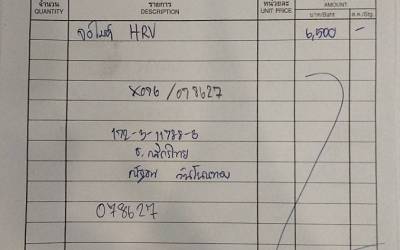 จำนวน รายการ หน่วยละ AMOUNT
QUANTITY DESCRIPTION UNIT PRICE บาท/Baht ส.ต./Stg.
จอไมล์ HRV 6,500 -
X096/078627
172-3-11788-3
ธ.กสิกรไทย
078627